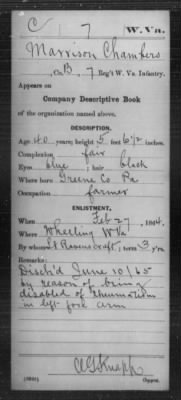 C 7 W. Va.
Marrison Chambers
Co. B, 7 Reg't W. Va. Infantry.
Appears on
Company Descriptive Book
of the organization named above.
DESCRIPTION.
Age 40 years; height 5 feet 6 1/2 inches.
Complexion fair
Eyes blue; hair black
Where born Greene Co Pa
Occupation farmer
ENLISTMENT.
When Feb 27, 1864.
Where Wheeling W Va
By whom Lt Ravenscraft; term 3 y'rs.
Remarks:
Disch'd June 10/65
by reason of being
disabled of rheumatism
in left fore arm
Copyist.